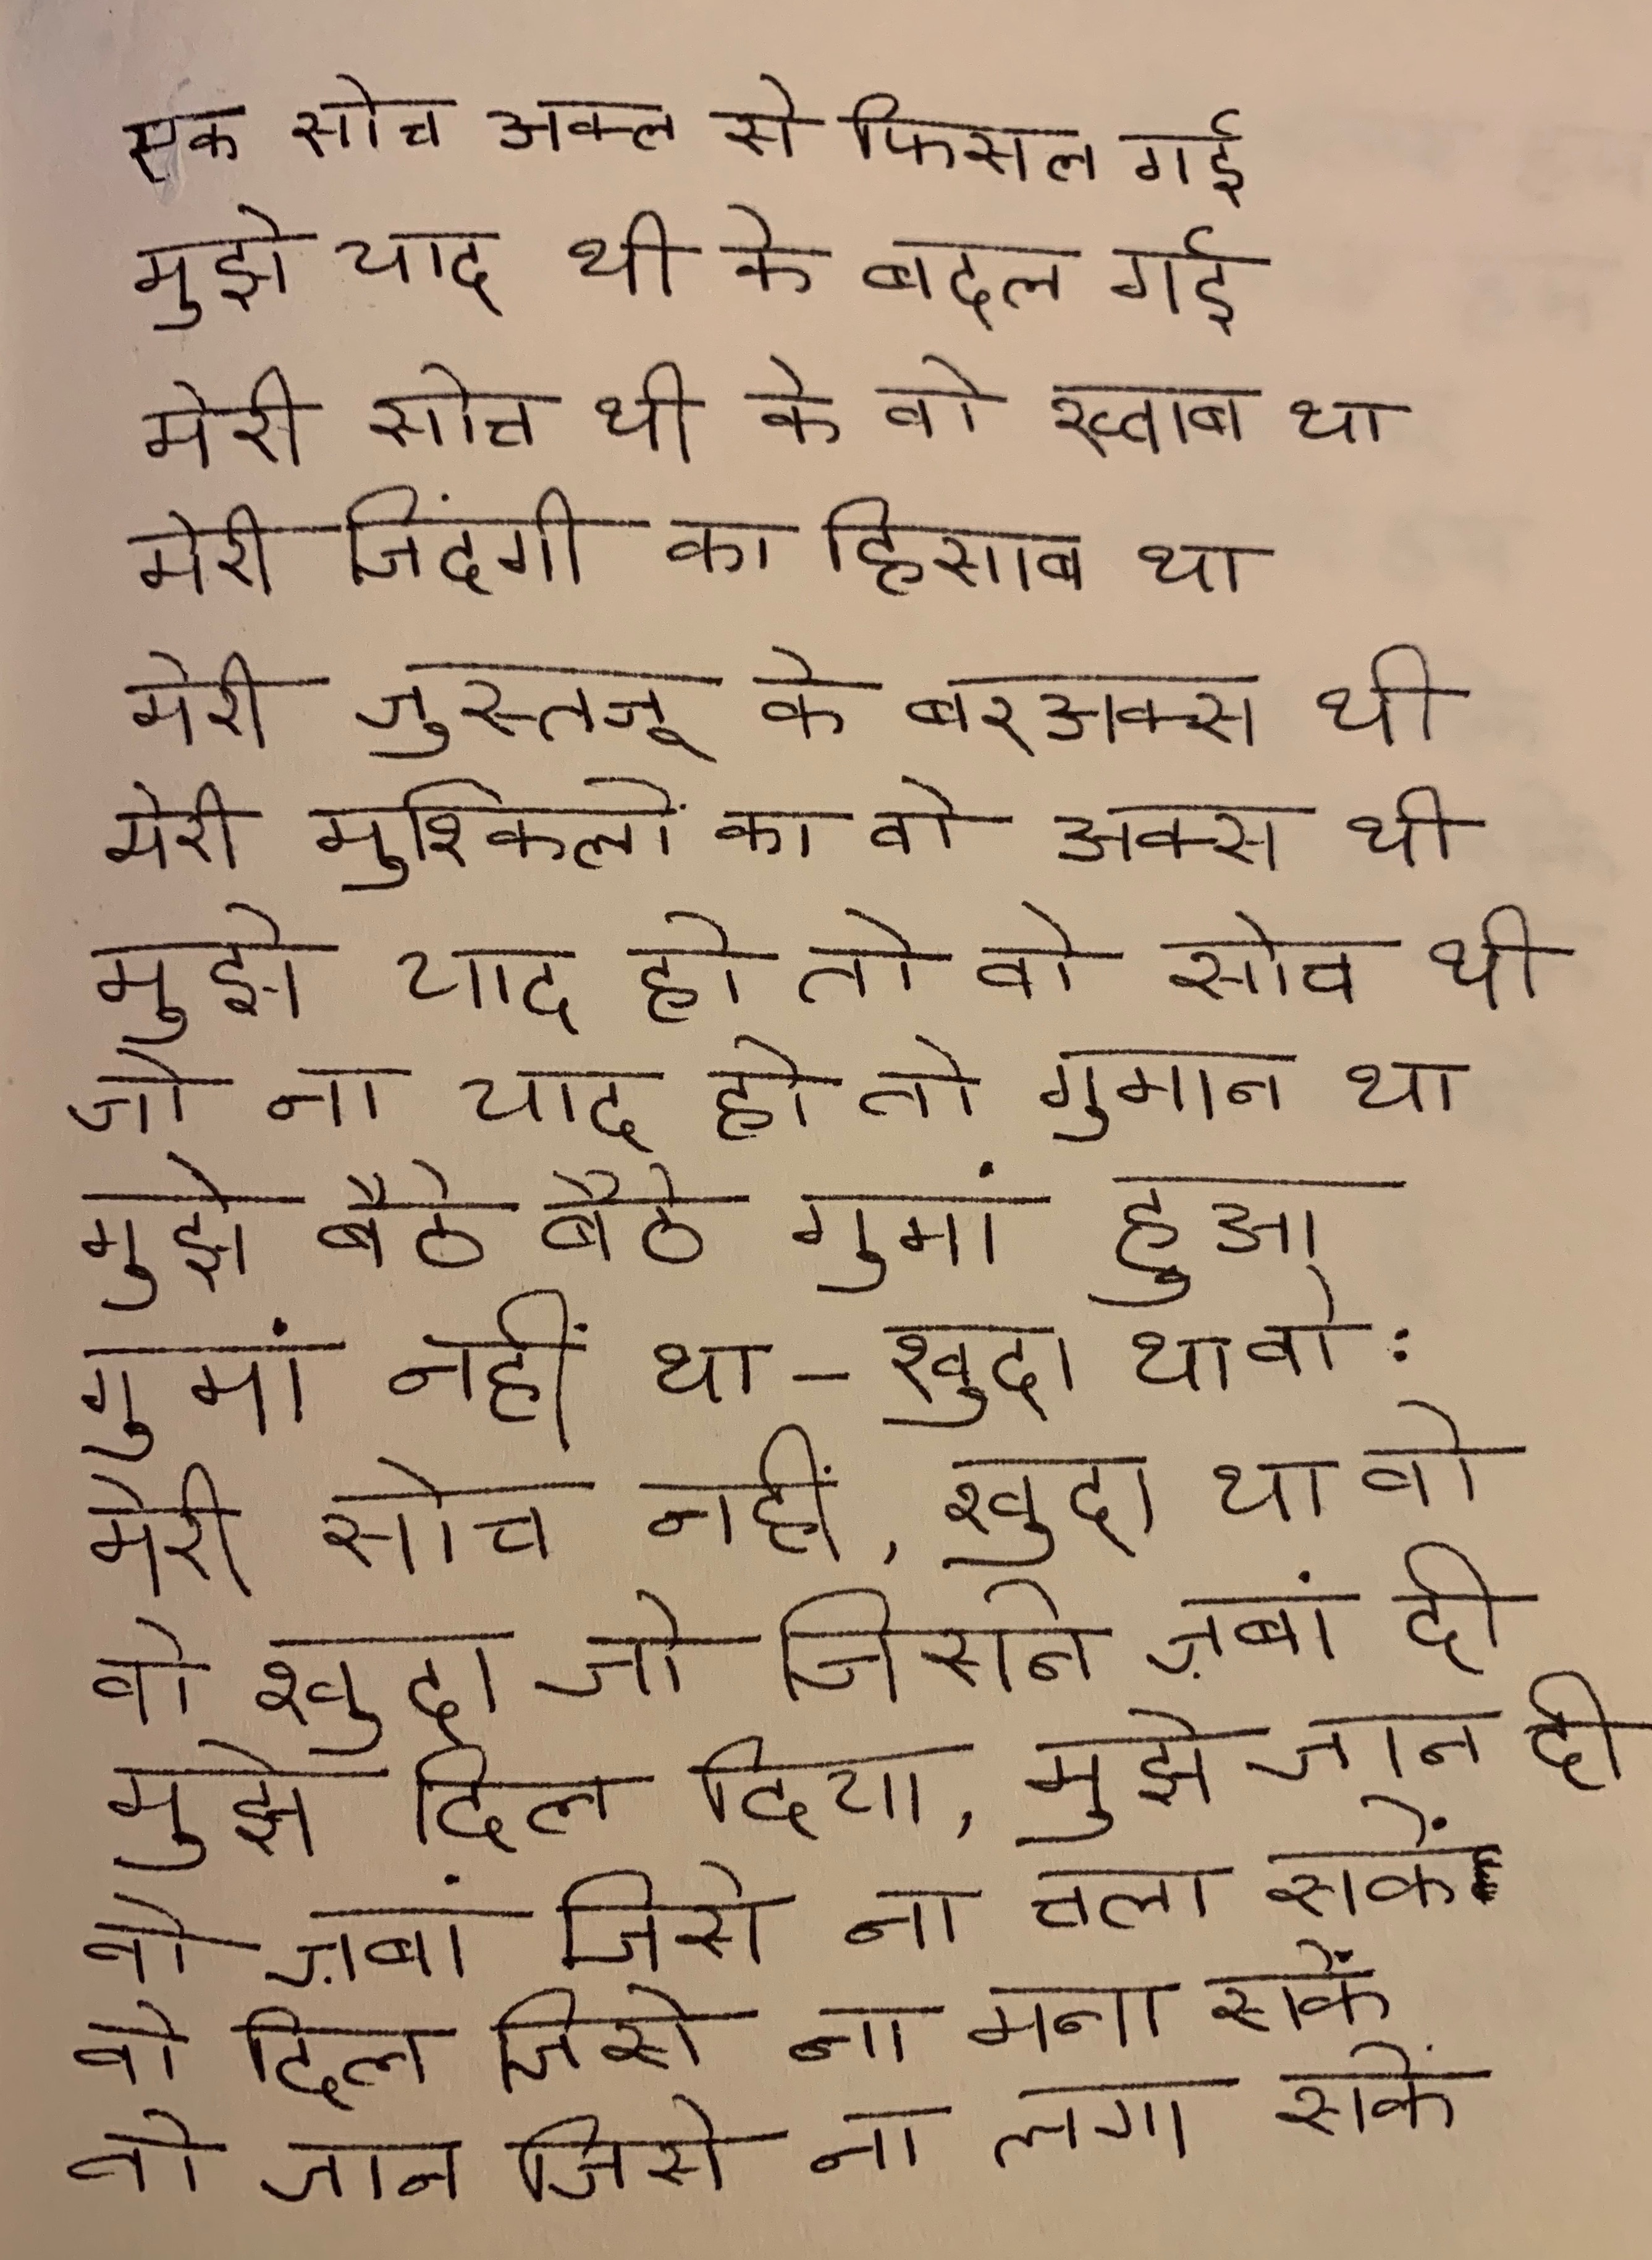 एक सोच अक्ल से फिसल गई
मुझे याद थी के बदल गई
मेरी सोच थी के वो ख्वाब था
मेरी जिंदगी का हिसाब था
मेरी जुस्तजू के बरअक्स थी
मेरी मुश्किलों का वो अक्स थी
मुझे याद हो तो वो सोच थी
जो ना याद हो तो गुमान था
मुझे बैठे बैठे गुमां हुआ
गुमां नहीं था – खुदा था वो :
मेरी सोच नहीं, खुदा था वो
वो खुदा जो जिसने ज़बां दी
मुझे दिल दिया, मुझे जान दी
वो ज़बां जिसे ना चला सकें
वो दिल जिसे ना मना सकें
वो जान जिसे ना लगा सकें